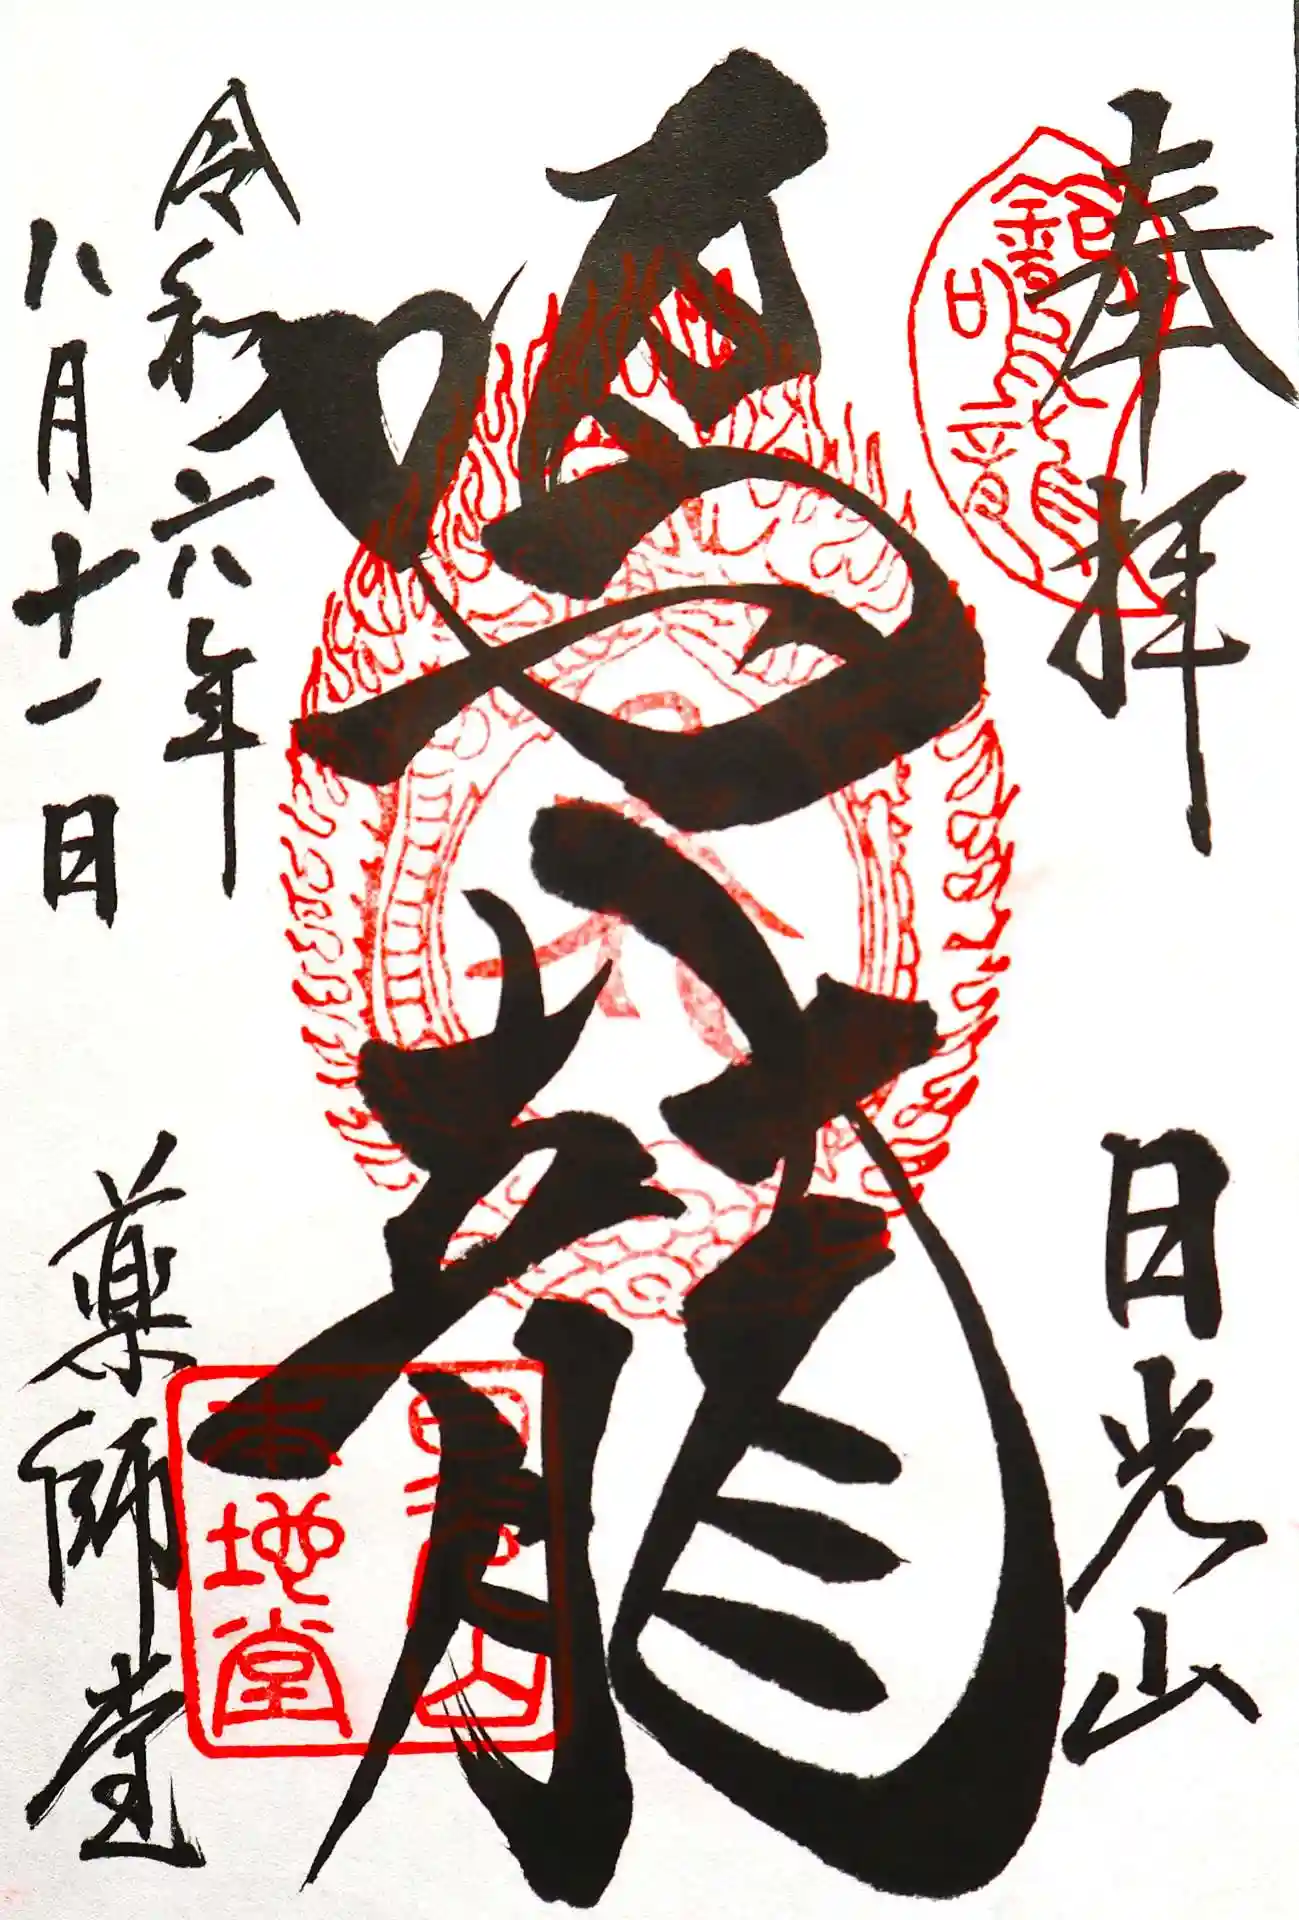 奉拝
日光山
鳴龍
令和六年
八月十一日
薬師堂
鈴鳴龍音
日光山
本地堂